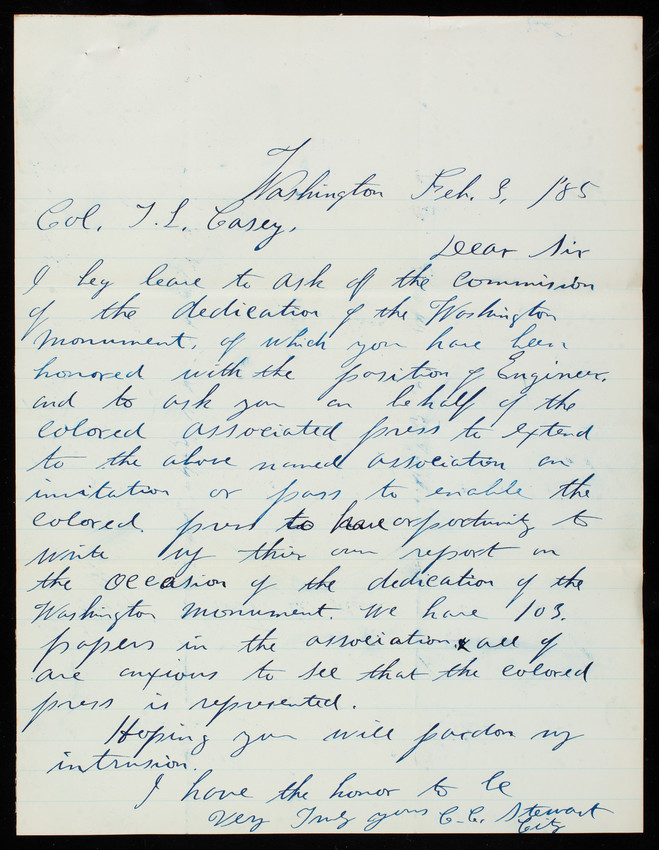 Washington Feb. 3, 1885
Col. T. L. Casey,
Dear Sir
I beg leave to ask of the commission
of the dedication of the Washington
Monument, of which you have been
honored with the position of Engineer,
and to ask you on behalf of the
colored associated press to extend
to the above named association an
invitation or pass to enable the
colored press to have opportunity to
write up their own report on
the occasion of the dedication of the
Washington Monument. We have 103.
papers in the association & all of
are anxious to see that the colored
press is represented.
Hoping you will pardon my
intrusion.
I have the honor to be
Very Truly yours C. C. Stewart
City